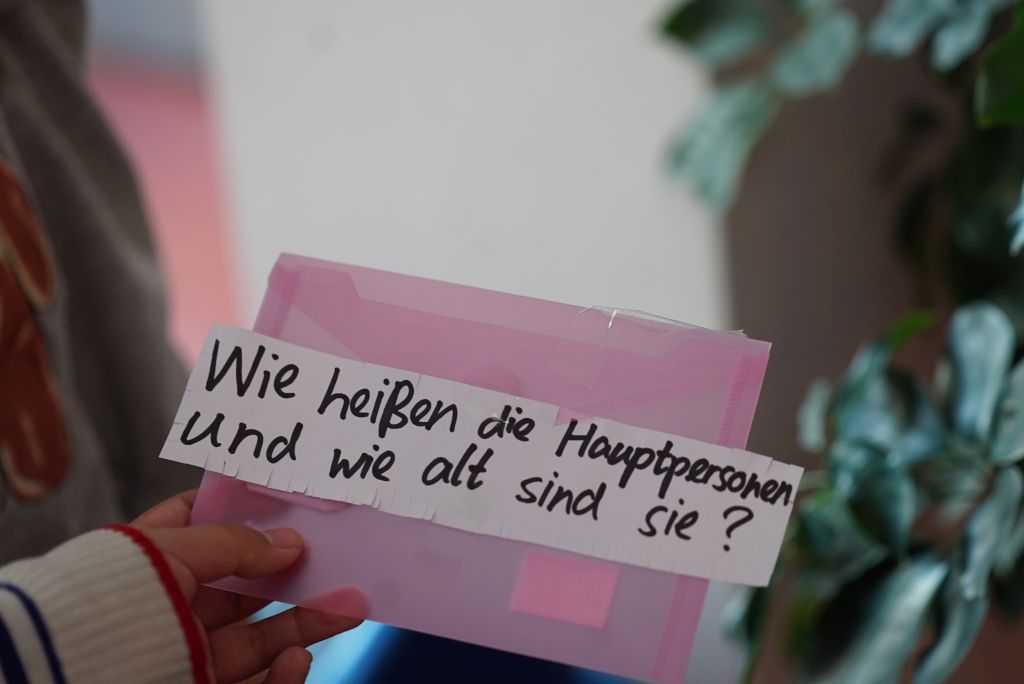 Wie heißen die Hauptpersonen
Und wie alt sind sie?